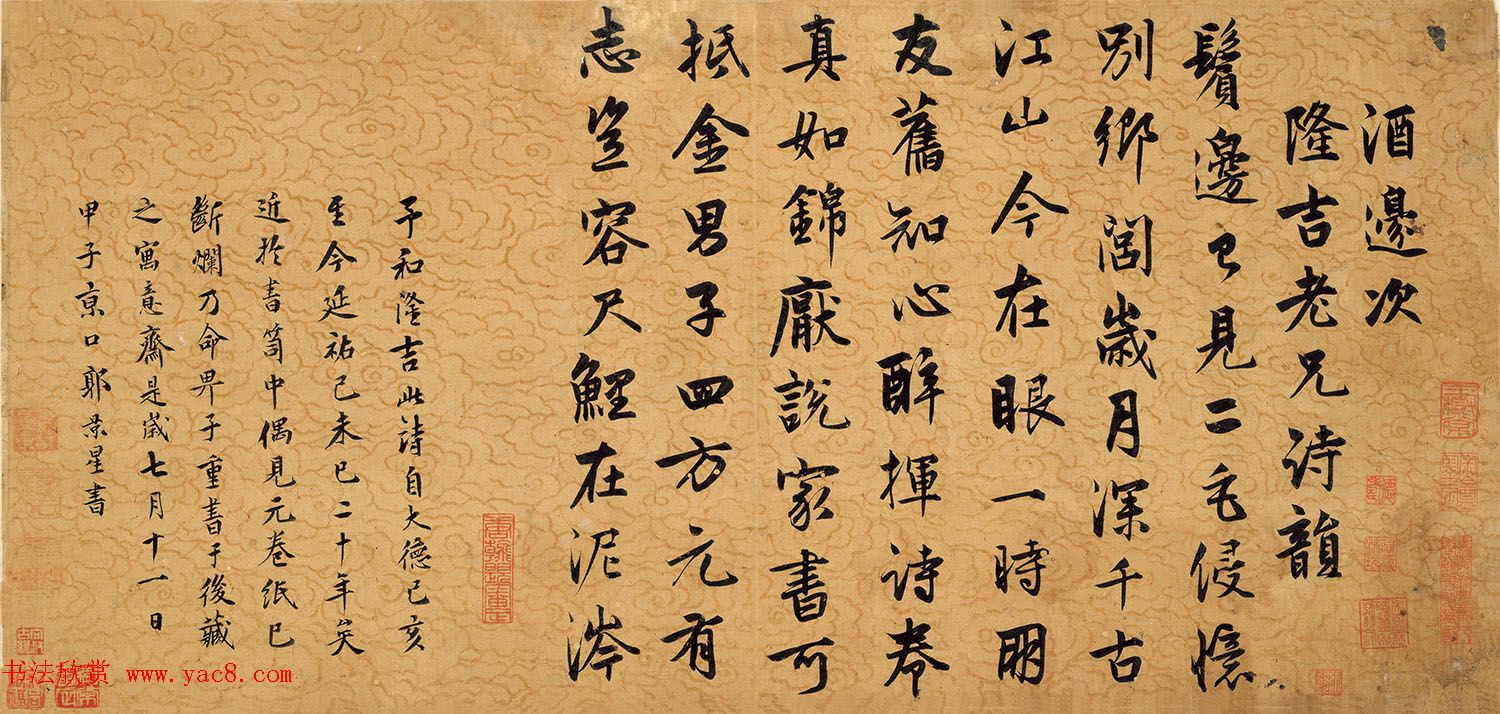 酒邊次
隆吉老兄诗韻
鬢邊已見二毛侵憶
别鄉閭歲月深千古
江山今在眼一時朋
友舊知心醉揮诗卷
真如錦厭説家書可
抵金男子四方元有
志豈容尺鯉在泥涔
予和隆吉此詩自大德己亥
至今延祐己未已二十年矣
近於書笥中偶見元卷纸已
斷爛乃命畀子重書于後藏
之寓意齋是歲七月十一日
甲子京口郭景星書
书法欣赏 www.yac8.com